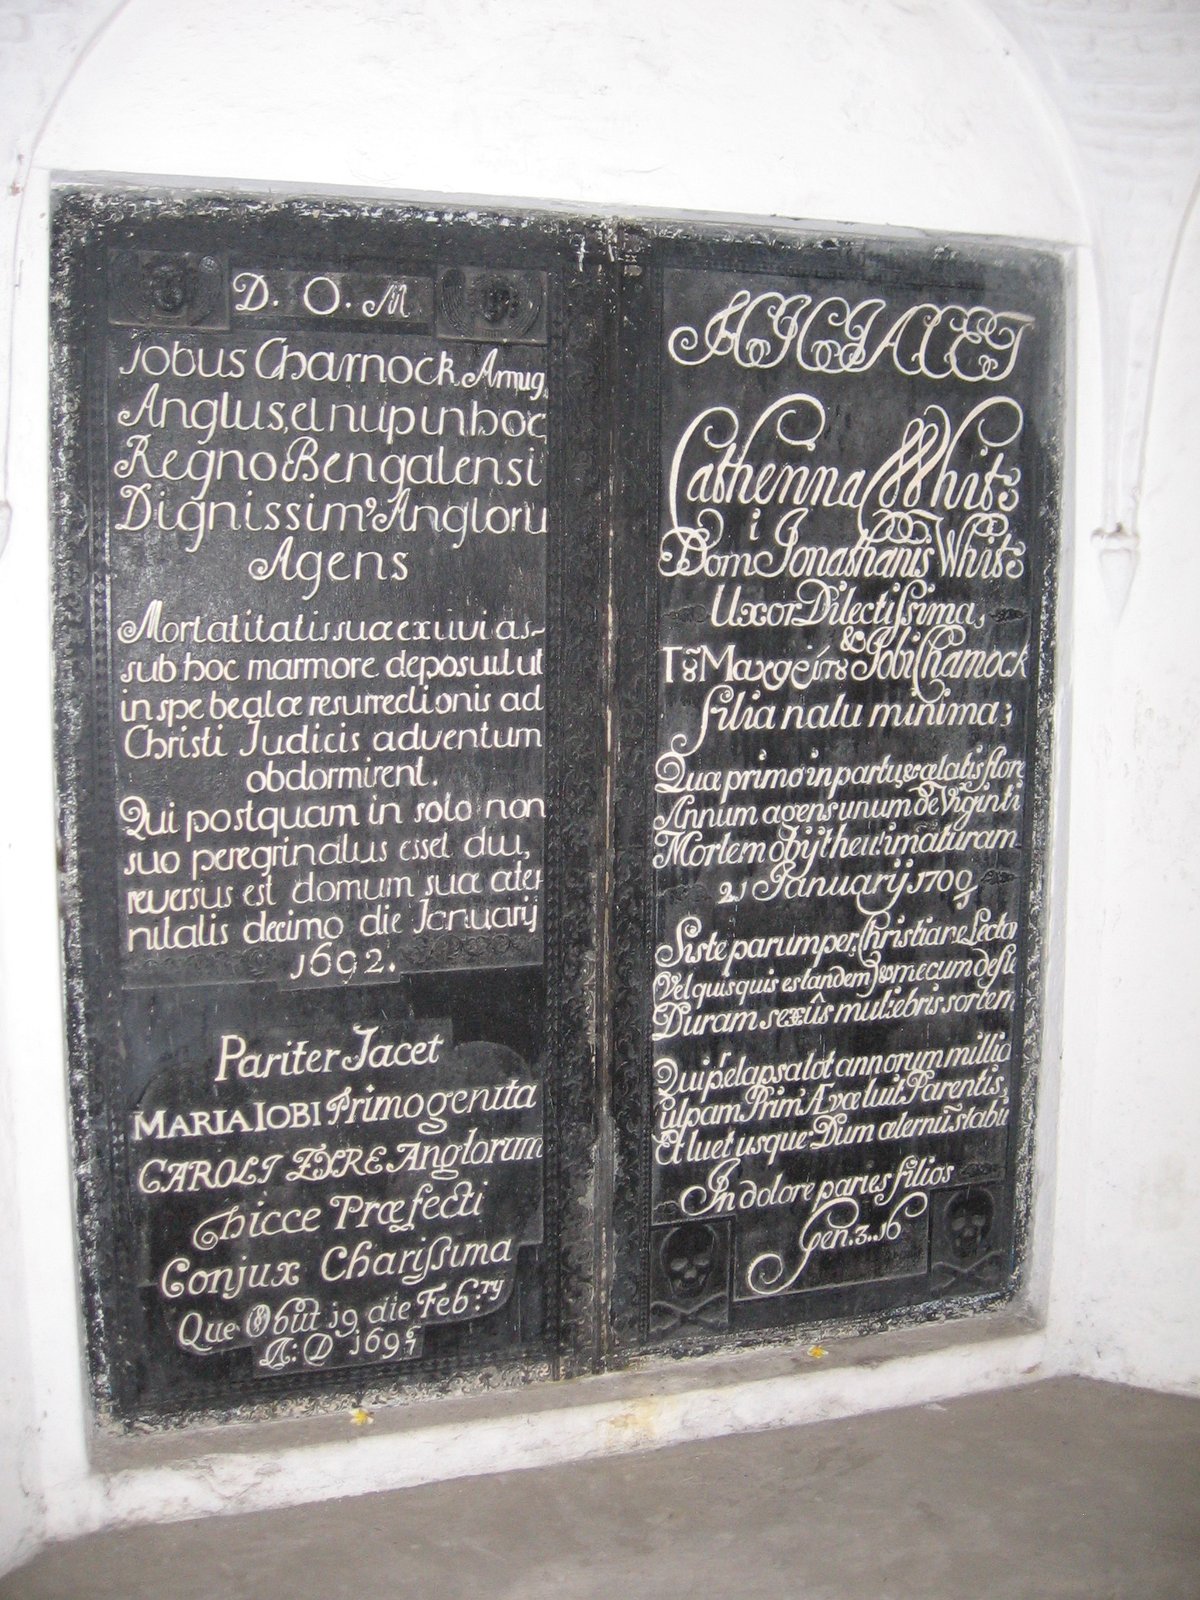 D. O. M
Jobus Charnock Armug,
Anglus, et nup in hoc
Regno Bengalensi
Dignissim' Angloru
Agens
Mortalitatis suæ exuvias
sub hoc marmore deposuit ut
in spe beatæ resurrectionis ad
Christi Judicis adventum
obdormirent.
Qui postquam in solo non
suo peregrinatus esset diu,
reversus est domum suæ æter
nitatis decimo die Januarij
1692.
Pariter Jacet
MARIA IOBI Primogenita
CAROLI EYRE Anglorum
hicce Præfecti
Conjux Charissima
Que Obiit 19 die Feb:ry
A: D 169
HIC JACET
Catherina White
Dom Jonathanis White
Uxor Dilectissima,
& Jobi Charnock
Filia natu minima;
Quæ primo in partu, & ætatis flore
Annum agens unum de Viginti
Mortem obijt heu! imaturam
21 Januarij 1700
Siste parumper, Christiane Lector
Vel quisquis es tandem) & mecum defle
Duram sexûs muliebris sortem
Qui p elapsa tot annorum millia
Culpam Prim' Evæ luit Parentis,
Et luet usque Dum æternū stabit
In dolore paries filios
Gen. 3. 16